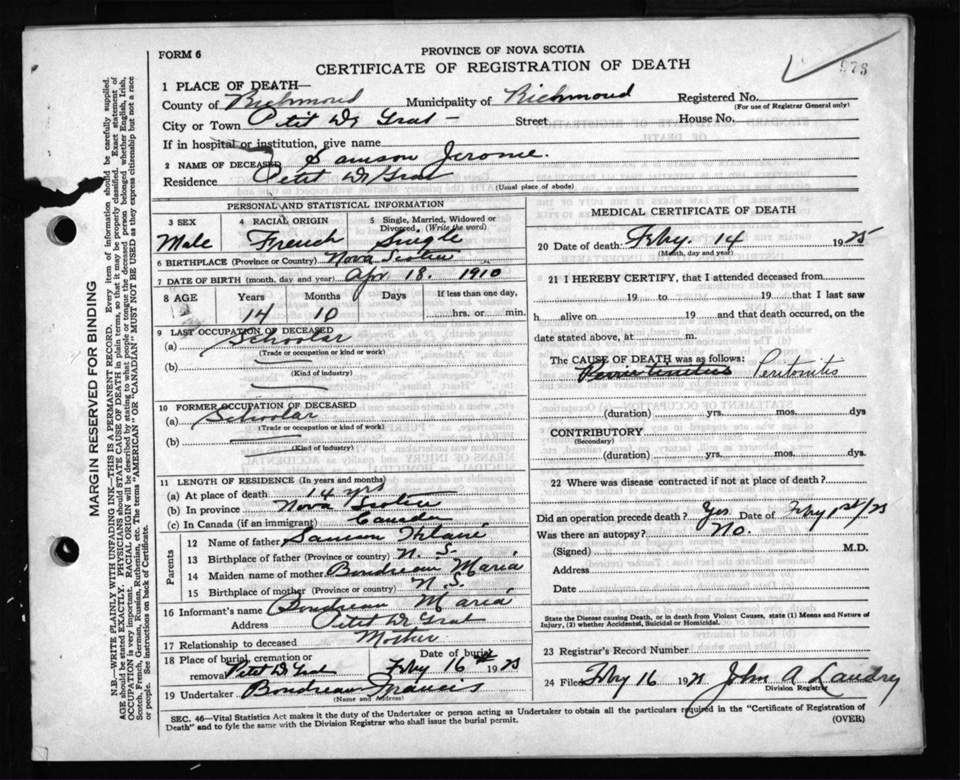 FORM 6
PROVINCE OF NOVA SCOTIA
CERTIFICATE OF REGISTRATION OF DEATH
978
1 PLACE OF DEATH—
County of Richmond Municipality of Richmond Registered No.
(For use of Registrar General only)
City or Town Petit De Grat - Street House No.
If in hospital or institution, give name
2 NAME OF DECEASED Samson Jerome.
Residence Petit De Grat
(Usual place of abode)
PERSONAL AND STATISTICAL INFORMATION
3 SEX 4 RACIAL ORIGIN 5 Single, Married, Widowed or
Divorced. (Write the word)
Male French Single
6 BIRTHPLACE (Province or Country) Nova Scotia
7 DATE OF BIRTH (month, day and year) Apr 18. 1910
8 AGE Years Months Days If less than one day,
14 10 hrs. or min.
9 LAST OCCUPATION OF DECEASED
(a) Schoolar
(Trade or occupation or kind or work)
(b)
(Kind of industry)
10 FORMER OCCUPATION OF DECEASED
(a) Schoolar
(Trade or occupation or kind of work)
(b)
(Kind of industry)
11 LENGTH OF RESIDENCE (In years and months)
(a) At place of death 14 yrs
(b) In province Nova Scotia
(c) In Canada (if an immigrant) Canada
Parents
12 Name of father Samson
13 Birthplace of father (Province or country) N. S.
14 Maiden name of mother Boudreau Maria
15 Birthplace of mother (Province or country) N. S.
16 Informant's name Boudreau Maria
Address Petit De Grat
17 Relationship to deceased Mother
18 Place of burial, cremation or Date of burial
removal Petit De Grat Feby 16 1925
19 Undertaker Boudreau Francis
(Name and Address)
MEDICAL CERTIFICATE OF DEATH
20 Date of death: Feby. 14 1925
(Month, day and year)
21 I HEREBY CERTIFY, that I attended deceased from
19 to 19 that I last saw
h alive on 19 and that death occurred, on the
date stated above, at m.
The CAUSE OF DEATH was as follows:
Peritonitis
(duration) yrs. mos. dys
CONTRIBUTORY
(Secondary)
(duration) yrs. mos. dys.
22 Where was disease contracted if not at place of death?
Did an operation precede death? Yes. Date of Feby 1st/25
Was there an autopsy? No.
(Signed) M.D.
Address
Date
State the Disease causing Death, or in death from Violent Causes, state (1) Means and Nature of
Injury, (2) whether Accidental, Suicidal or Homicidal.
23 Registrar's Record Number
24 Filed Feby 16 192 John A Landry
Division Registrar
SEC. 46—Vital Statistics Act makes it the duty of the Undertaker or person acting as Undertaker to obtain all the particulars required in the "Certificate of Registration of
Death" and to fyle the same with the Division Registrar who shall issue the burial permit.
(OVER)
MARGIN RESERVED FOR BINDING
N.B.—WRITE PLAINLY WITH UNFADING INK—THIS IS A PERMANENT RECORD. Every item of information should be carefully supplied.
AGE should be stated EXACTLY. PHYSICIANS should STATE CAUSE OF DEATH in plain terms, so that it may be properly classified. Exact statement of
OCCUPATION is very important. RACIAL ORIGIN will be described by stating to what people or tongue the deceased person belonged whether English, Irish,
Scotch, French, German, Russian, Ruthenian, etc. The terms "AMERICAN OR "CANADIAN" MUST NOT BE USED as they express citizenship but not a race
or people. See instructions on back of Certificate.